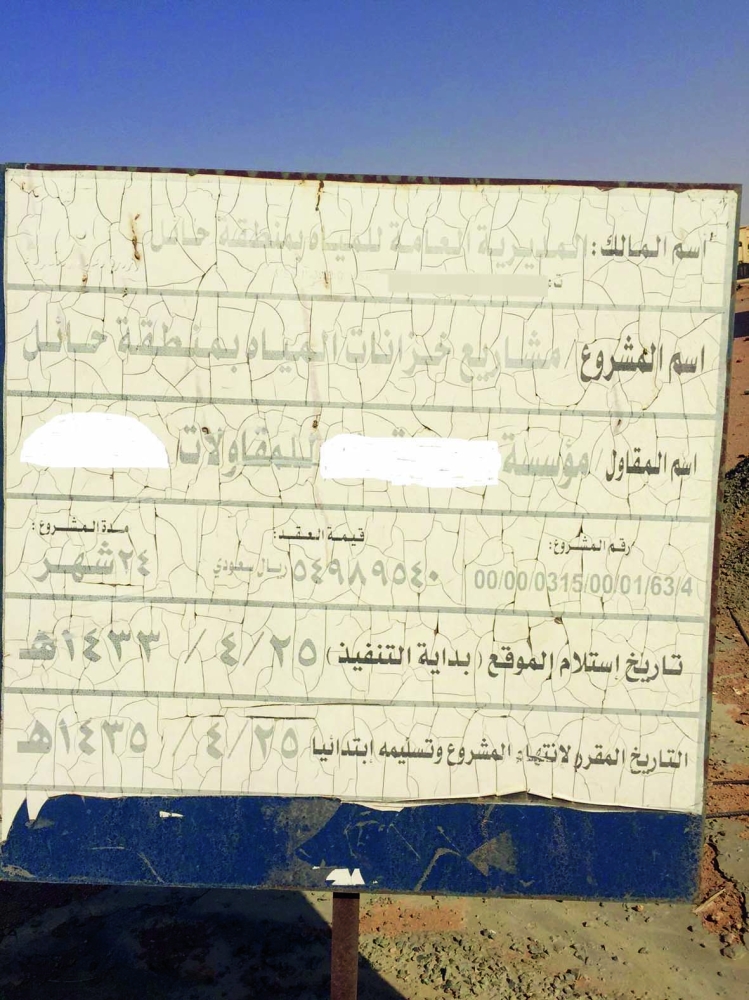 اسم المالك: المديرية العامة للمياه بمنطقة حائل
ت:
اسم المشروع / مشاريع خزانات المياه بمنطقة حائل
اسم المقاول / مؤسسة للمقاولات
رقم المشروع: قيمة العقد: مدة المشروع:
00/00/0315/00/01/63/4 ٥٤٩٨٩٥٤٠ ريال سعودي ٢٤ شهر
تاريخ إستلام الموقع ( بداية التنفيذ ) ٢٥ /٤ / ١٤٣٣هـ
التاريخ المقرر لانتهاء المشروع وتسليمه ابتدائيا ٢٥ /٤ / ١٤٣٥هـ